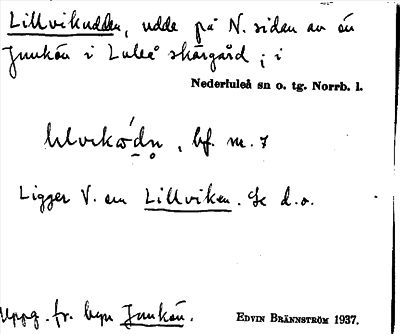 Lillvikudden, udde på N. sidan av ön
Junkön i Luleå skärgård; i
Nederluleå sn o. tg. Norrb. l.
bf. m. 7
Ligger V. om Lillviken. Se d.o.
Uppg. fr. byn Junkön. EDVIN BRÄNNSTRÖM 1937.